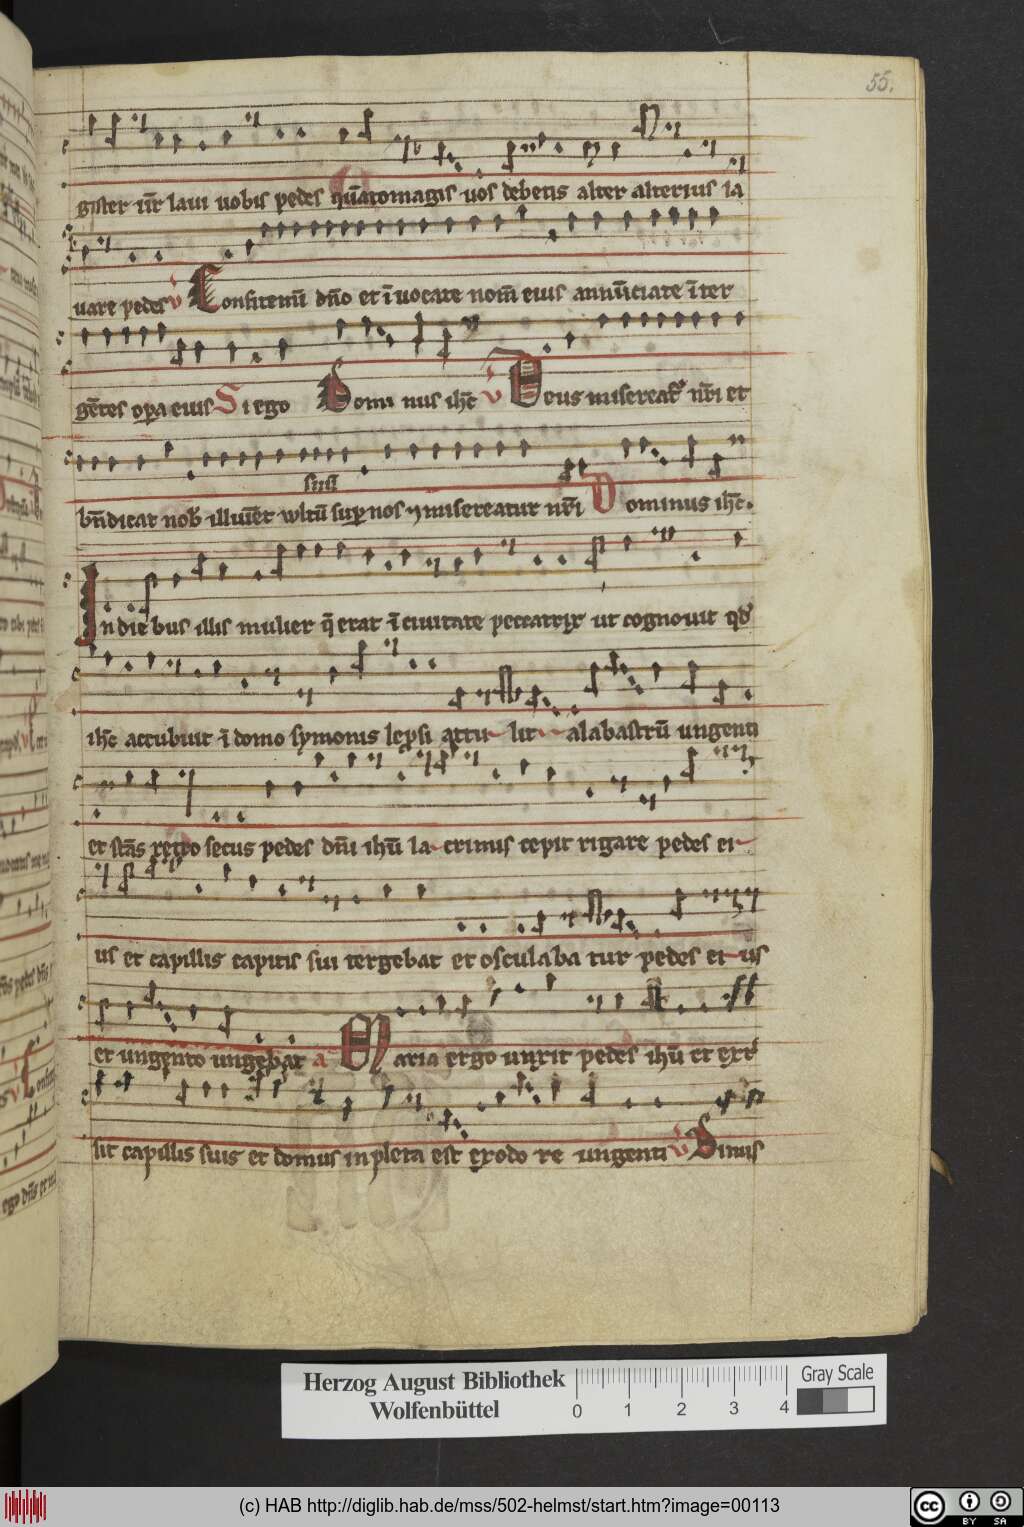 55.
gister ur̄ laui uobis pedes quātomagis uos debetis alter alterius la
uare pedes v̄ Confitemī dn̄o et ī uocate nom̄ eius annūciate īter
gētes opa eius Si ego Domi nus ih̄c v̄ Deus misereat̄ nr̄i et
suū
bn̄dicat nob̄ illuīet uultū sup nos ⁊ misereatur nr̄i Dominus ih̄c.
In die bus illis mulier q̄ erat ī ciuitate peccatrix ut cognouit qd̄
ih̄c accubuit ī domo symonis leprosi attu lit alabastrū ungenti
et stās retro secus pedes dn̄i ih̄u la crimis cepit rigare pedes ei
us et capillis capitis sui tergebat et osculaba tur pedes ei us
et ungento ungebat a Maria ergo unxit pedes ih̄u et ext̄
sit capillis suis et domus inpleta est ex odo re ungenti v̄ Dimis
Herzog August Bibliothek
Wolfenbüttel
0 1 2 3 4
Gray Scale
(c) HAB http://diglib.hab.de/mss/502-helmst/start.htm?image=00113
cc BY SA